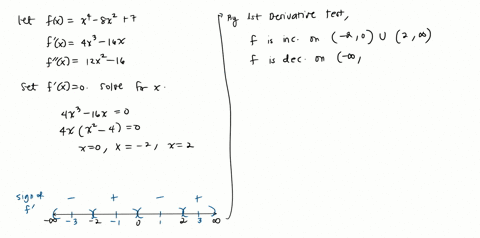 let f(x) = x⁴ - 8x² + 7
f'(x) = 4x³ - 16x
f''(x) = 12x² - 16
Set f'(x)=0. Solve for x.
4x³ - 16x = 0
4x (x² - 4) = 0
x=0, x = -2, x=2
sign of f'
- + - +
-∞ -3 -2 -1 0 1 2 3 ∞
By 1st Derivative Test,
f is inc. on (-2,0) ∪ (2, ∞)
f is dec. on (-∞,